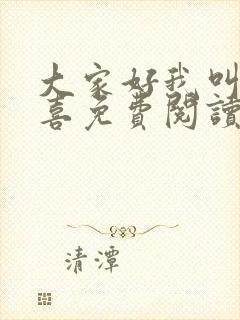 大家好我叫
喜免費閱讀
清潭